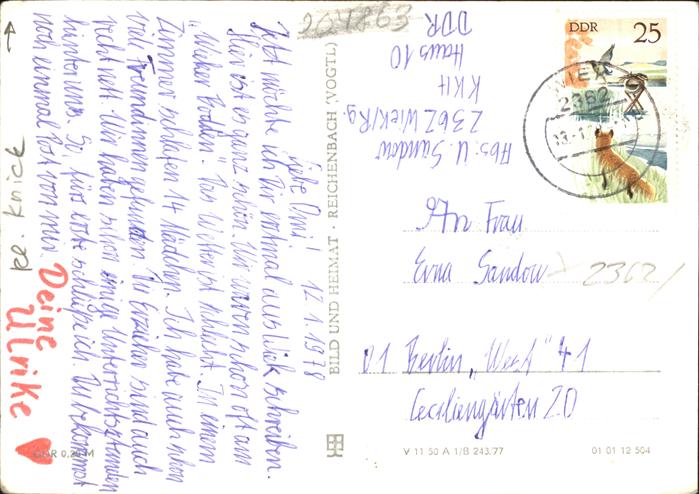 12.1.1978
Liebe Omi!
Jetzt möchte ich Dir erstmal aus Wiek schreiben.
Hier ist es ganz schön. Wir waren schon oft am
"Wieker Bodden". Das Wetter ist schlecht. In einem
Zimmer schlafen 14 Mädchen. Ich habe auch schon
viele Freundinnen gefunden. Die Erzieher sind auch
recht nett. Wir haben schon einige Unterrichtsstunden
hinter uns. So, fürs erste schließe ich. Du bekommst
noch einmal Post von mir.
Deine
Ulrike
kl. Knick
BILD UND HEIMAT · REICHENBACH (VOGTL)
Abs: U. Sandow
2362 Wiek/Rg.
KKH
Haus 10
DDR
DDR 25
WIEK
2362
An Frau
Erna Sandow
2362/
01 Berlin "West" 41
Ceciliengärten 20
V 11 50 A 1/B 243/77
01 01 12 504